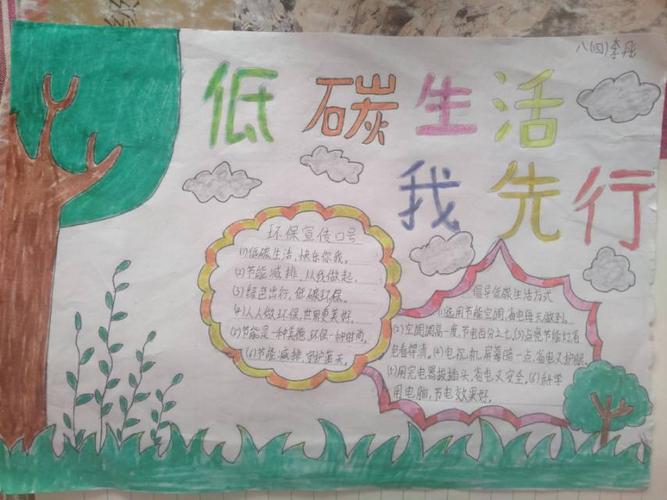 八(四)李彤
低碳生活
我先行
环保宣传口号
(1)低碳生活,快乐你我。
(2)节能减排,从我做起。
(3)绿色出行,低碳环保。
(4)人人做环保,世界更美好。
(5)节能是一种美德,环保一种时尚。
(6)节能减排,守护蓝天。
倡导低碳生活方式
(1)选用节能空调,省电每天做到。
(2)空调调高一度,节电百分之七。(3)点亮节能灯,省
电看得清。(4)电视机屏幕暗一点,省电又护眼。
(5)用完电器拔插头,省电又安全。(6)科学
用电脑,节电效果好。